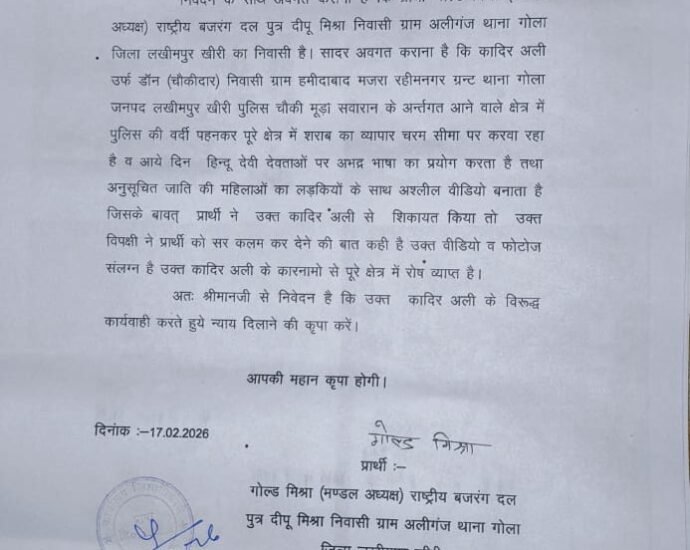 अध्यक्ष) राष्ट्रीय बजरंग दल पुत्र दीपू मिश्रा निवासी ग्राम अलीगंज थाना गोला
जिला लखीमपुर खीरी का निवासी है। सादर अवगत कराना है कि कादिर अली
उर्फ डॉन (चौकीदार) निवासी ग्राम हमीदाबाद मजरा रहीमनगर ग्रन्ट थाना गोला
जनपद लखीमपुर खीरी पुलिस चौकी मूड़ा सवारान के अर्न्तगत आने वाले क्षेत्र में
पुलिस की वर्दी पहनकर पूरे क्षेत्र में शराब का व्यापार चरम सीमा पर करवा रहा
है व आये दिन हिन्दू देवी देवताओं पर अभद्र भाषा का प्रयोग करता है तथा
अनुसूचित जाति की महिलाओं का लड़कियों के साथ अश्लील वीडियो बनाता है
जिसके बावत् प्रार्थी ने उक्त कादिर अली से शिकायत किया तो उक्त
विपक्षी ने प्रार्थी को सर कलम कर देने की बात कही है उक्त वीडियो व फोटोज
संलग्न है उक्त कादिर अली के कारनामो से पूरे क्षेत्र में रोष व्याप्त है।
अतः श्रीमानजी से निवेदन है कि उक्त कादिर अली के विरूद्ध
कार्यवाही करते हुये न्याय दिलाने की कृपा करें।
आपकी महान कृपा होगी।
दिनांक :–17.02.2026
गोल्ड मिश्रा
प्रार्थी :–
गोल्ड मिश्रा (मण्डल अध्यक्ष) राष्ट्रीय बजरंग दल
पुत्र दीपू मिश्रा निवासी ग्राम अलीगंज थाना गोला